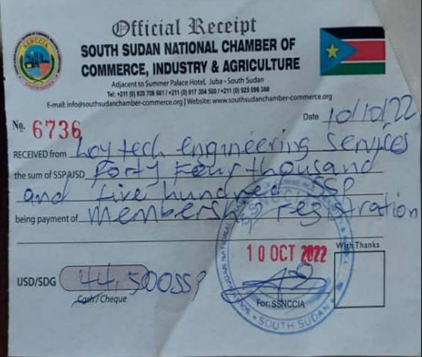 Official Receipt
SOUTH SUDAN NATIONAL CHAMBER OF
COMMERCE, INDUSTRY & AGRICULTURE
Adjacent to Summer Palace Hotel, Juba - South Sudan
E-mail: info@southsudanchamber-commerce.org | Website: www.southsudanchamber-commerce.org
Date 10/10/22
No. 6736
RECEIVED from Loytech engineering Services
the sum of SSP/USD Forty Four thousand
and five hundred SSP
being payment of membership registration
10 OCT 2022
With Thanks
USD/SDG 44,500SSP
Cash/Cheque
For: SSNCCIA
SOUTH SUDAN